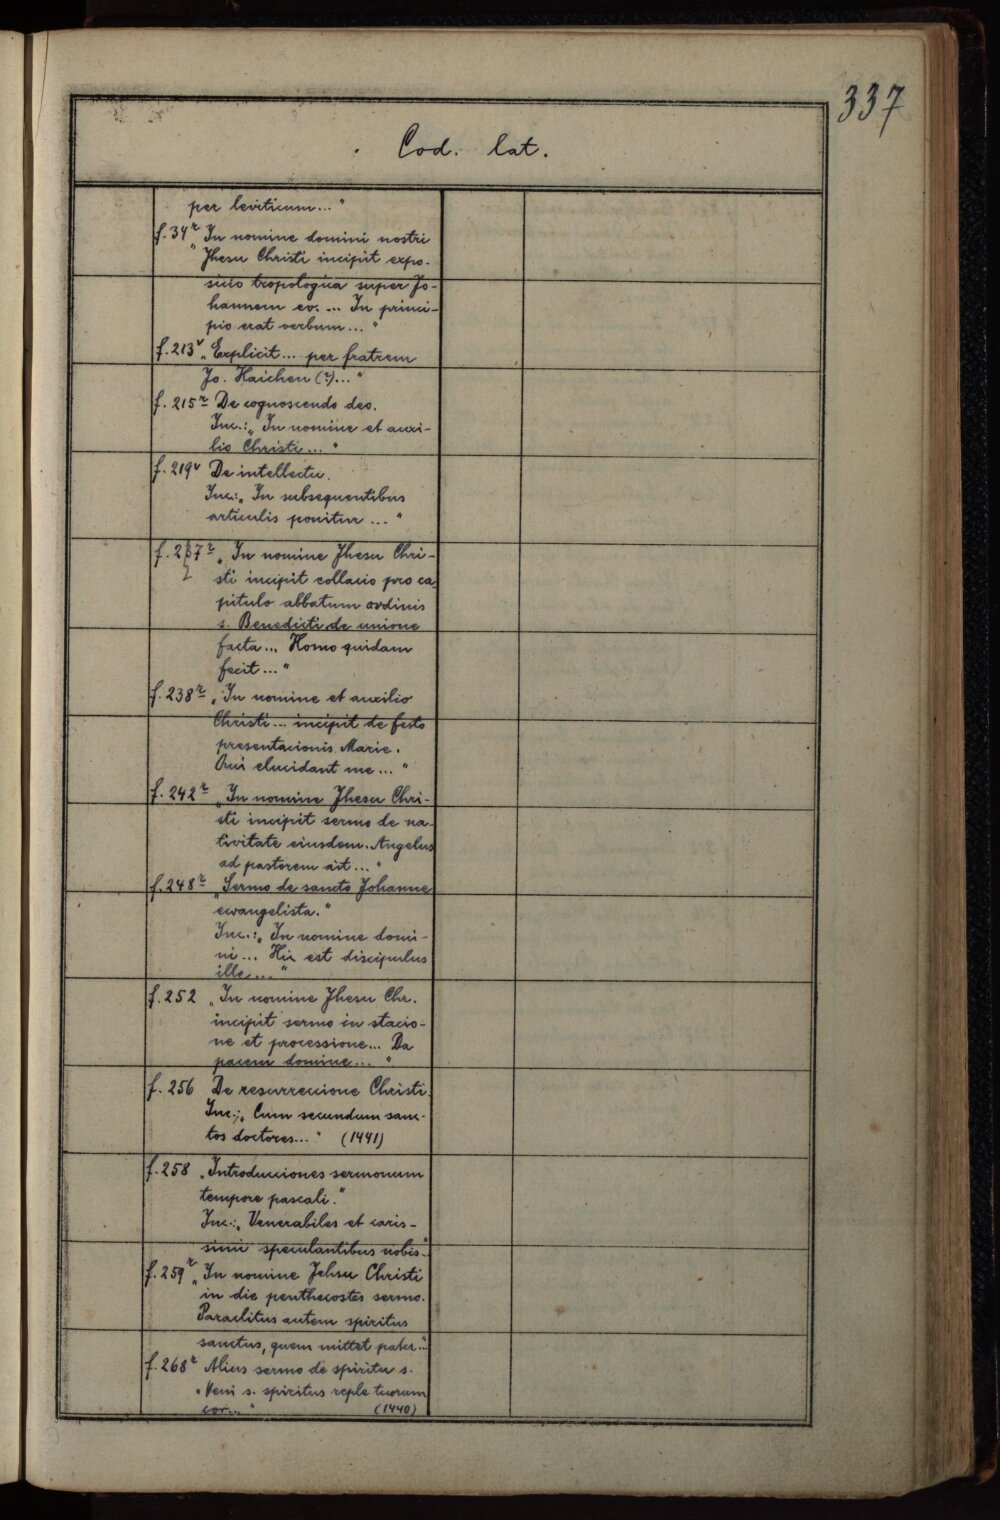 337
Cod. lat.
per leviticum..."
f. 34r „In nomine domini nostri
Jhesu Christi incipit expo-
sicio tropologica super Jo-
hannem ev. ... In princi-
pio erat verbum..."
f. 213v „Explicit... per fratrem
Jo. Haichen (?)..."
f. 215r De cognoscendo deo.
Inc.: „In nomine et auxi-
lio Christi..."
f. 219v De intellectu.
Inc.: „In subsequentibus
articulis ponitur..."
f. 237r „In nomine Jhesu Chri-
sti incipit collacio pro ca-
pitulo abbatum ordinis
s. Benedicti de unione
facta... Homo quidam
fecit..."
f. 238r „In nomine et auxilio
Christi... incipit de festo
presentacionis Marie.
Qui elucidant me..."
f. 242r „In nomine Jhesu Chri-
sti incipit sermo de na-
tivitate eiusdem. Angelus
ad pastorem ait..."
f. 248r „Sermo de sancto Johanne
ewangelista."
Inc.: „In nomine domi-
ni... Hic est discipulus
ille..."
f. 252 „In nomine Jhesu Chr.
incipit sermo in stacio-
ne et processione... Da
pacem domine..."
f. 256 De resurreccione Christi.
Inc.: „Cum secundum sanc-
tos doctores..." (1441)
f. 258 „Introducciones sermonum
tempore pascali."
Inc.: „Venerabiles et caris-
simi speculantibus nobis..."
f. 259r „In nomine Jehsu Christi
in die penthecostes sermo.
Paraclitus autem spiritus
sanctus, quem mittet pater..."
f. 268r Alius sermo de spiritu s.
„Veni s. spiritus reple tuorum
cor..." (1440)